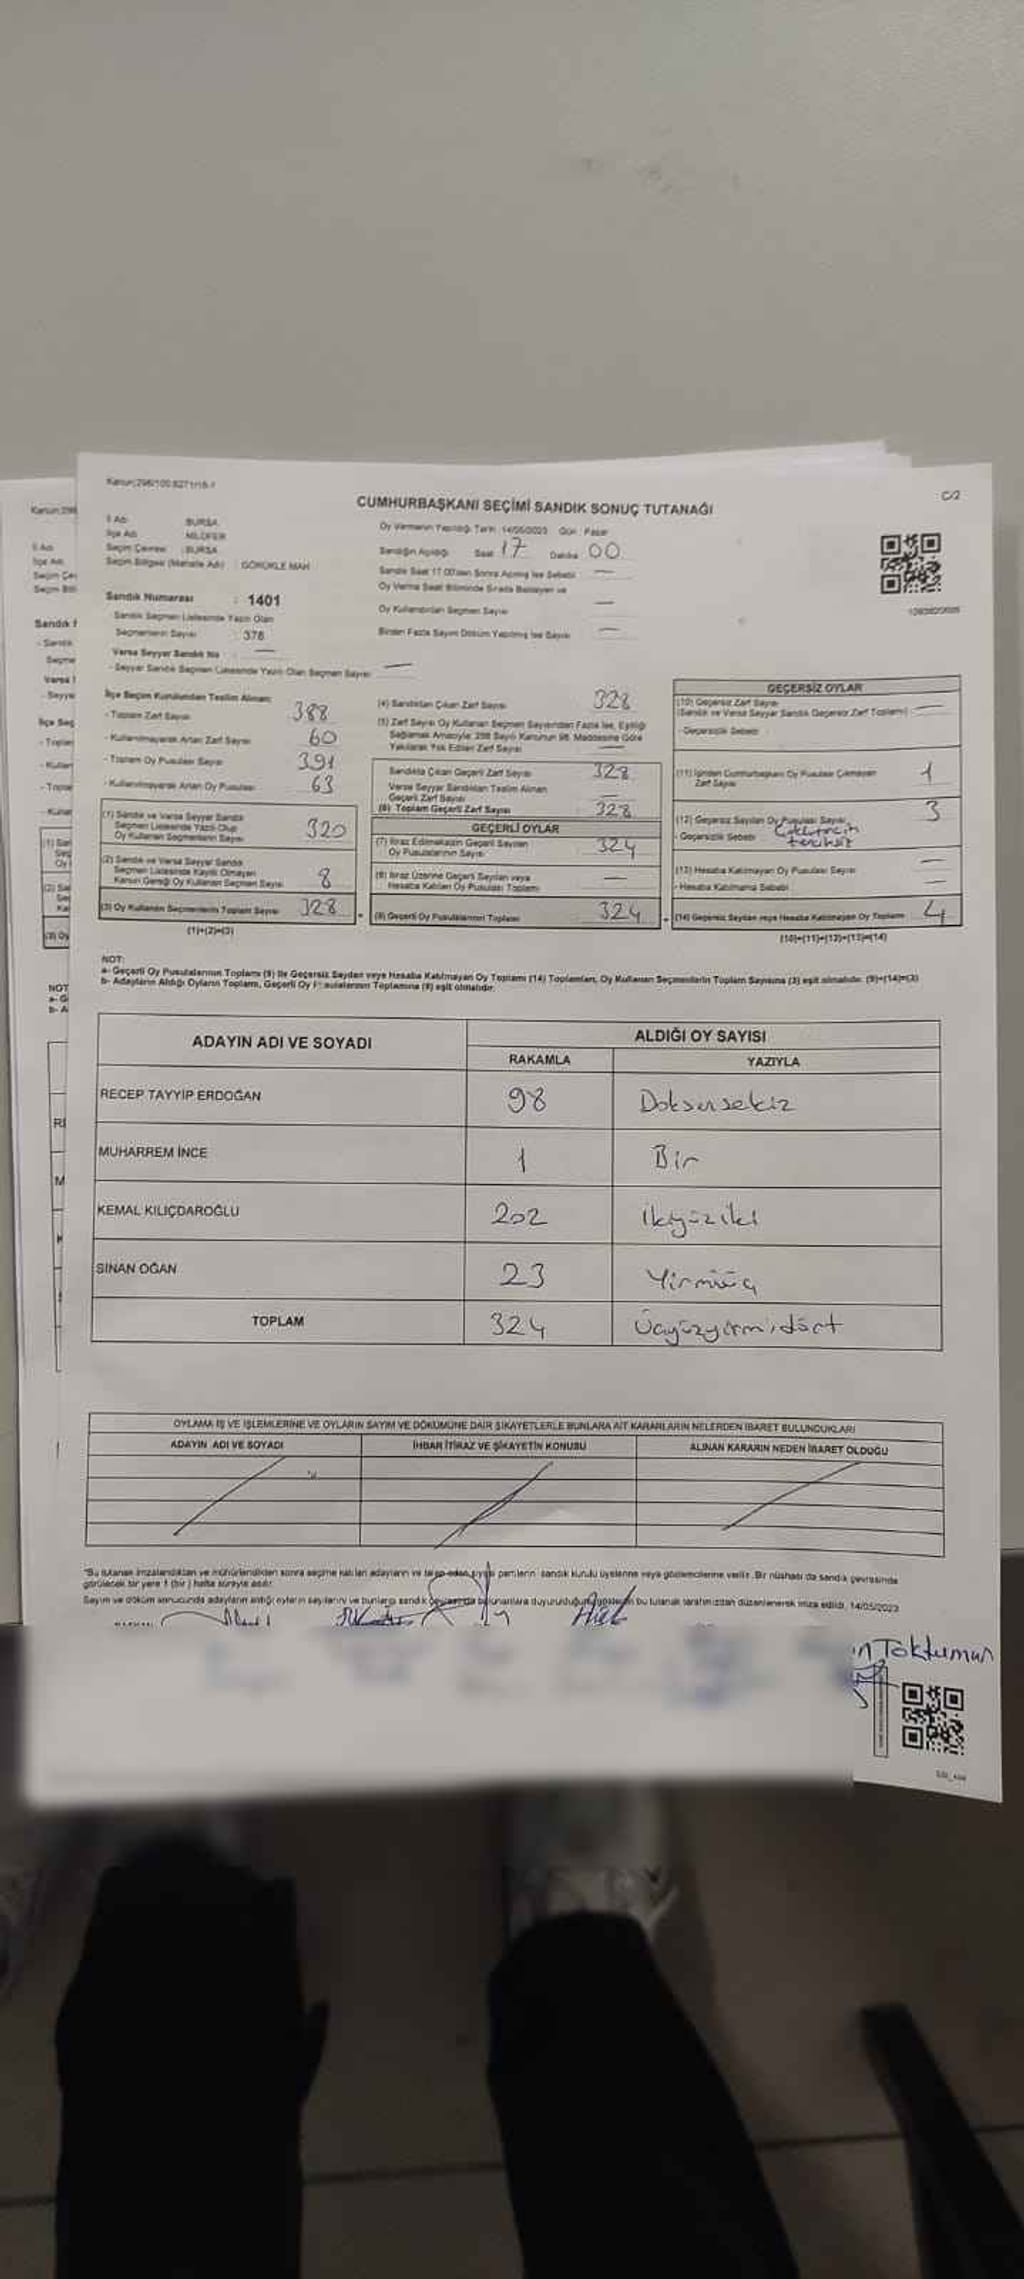 Kanun:298/100
C/2
CUMHURBAŞKANI SEÇİMİ SANDIK SONUÇ TUTANAĞI
İl Adı : BURSA
İlçe Adı : NİLÜFER
Seçim Çevresi : BURSA
Seçim Bölgesi (Mahalle Adı) : GÖRÜKLE MAH
Sandık Numarası : 1401
Sandık Seçmen Listesinde Yazılı Olan
Seçmenlerin Sayısı 378
Varsa Seyyar Sandık No —
- Seyyar Sandık Seçmen Listesinde Yazılı Olan Seçmen Sayısı —
Oy Vermenin Yapıldığı Tarih: 14/05/2023 Gün : Pazar
Sandığın Açıldığı Saat 17 Dakika 00
Sandık Saat 17:00'dan Sonra Açılmış İse Sebebi —
Oy Verme Saati Bitiminde Sırada Bekleyen ve
Oy Kullandırılan Seçmen Sayısı —
Birden Fazla Sayım Döküm Yapılmış İse Sayısı —
İlçe Seçim Kurulundan Teslim Alınan:
- Toplam Zarf Sayısı 388
- Kullanılmayarak Artan Zarf Sayısı 60
- Toplam Oy Pusulası Sayısı 391
- Kullanılmayarak Artan Oy Pusulası 63
(1) Sandık ve Varsa Seyyar Sandık
Seçmen Listesinde Yazılı Olup
Oy Kullanan Seçmenlerin Sayısı 320
(2) Sandık ve Varsa Seyyar Sandık
Seçmen Listesinde Kayıtlı Olmayan
Kanun Gereği Oy Kullanan Seçmen Sayısı 8
(3) Oy Kullanan Seçmenlerin Toplam Sayısı 328
(1)+(2)=(3)
(4) Sandıktan Çıkan Zarf Sayısı 328
(5) Zarf Sayısı Oy Kullanan Seçmen Sayısından Fazla İse, Eşitliği
Sağlamak Amacıyla; 298 Sayılı Kanunun 98. Maddesine Göre
Yakılarak Yok Edilen Zarf Sayısı —
Sandıkta Çıkan Geçerli Zarf Sayısı 328
Varsa Seyyar Sandıktan Teslim Alınan
Geçerli Zarf Sayısı —
(6) Toplam Geçerli Zarf Sayısı 328
GEÇERLİ OYLAR
(7) İtiraz Edilmeksizin Geçerli Sayılan
Oy Pusulalarının Sayısı 324
(8) İtiraz Üzerine Geçerli Sayılan veya
Hesaba Katılan Oy Pusulası Toplamı —
(9) Geçerli Oy Pusulalarının Toplamı 324
GEÇERSİZ OYLAR
(10) Geçersiz Zarf Sayısı
(Sandık ve Varsa Seyyar Sandık Geçersiz Zarf Toplamı) —
- Geçersizlik Sebebi
(11) İçinden Cumhurbaşkanı Oy Pusulası Çıkmayan
Zarf Sayısı 1
(12) Geçersiz Sayılan Oy Pusulası Sayısı 3
- Geçersizlik Sebebi
(13) Hesaba Katılmayan Oy Pusulası Sayısı —
- Hesaba Katılmama Sebebi —
(14) Geçersiz Sayılan veya Hesaba Katılmayan Oy Toplamı 4
(10)+(11)+(12)+(13)=(14)
NOT:
a- Geçerli Oy Pusulalarının Toplamı (9) ile Geçersiz Sayılan veya Hesaba Katılmayan Oy Toplamı (14) Toplamları, Oy Kullanan Seçmenlerin Toplam Sayısına (3) eşit olmalıdır. (9)+(14)=(3)
b- Adayların Aldığı Oyların Toplamı, Geçerli Oy Pusulalarının Toplamına (9) eşit olmalıdır.
ADAYIN ADI VE SOYADI
ALDIĞI OY SAYISI
RAKAMLA YAZIYLA
RECEP TAYYİP ERDOĞAN 98 Doksansekiz
MUHARREM İNCE 1 Bir
KEMAL KILIÇDAROĞLU 202 İkiyüziki
SİNAN OĞAN 23 Yirmiüç
TOPLAM 324 Üçyüzyirmidört
OYLAMA İŞ VE İŞLEMLERİNE VE OYLARIN SAYIM VE DÖKÜMÜNE DAİR ŞİKAYETLERLE BUNLARA AİT KARARLARIN NELERDEN İBARET BULUNDUKLARI
ADAYIN ADI VE SOYADI İHBAR İTİRAZ VE ŞİKAYETİN KONUSU ALINAN KARARIN NEDEN İBARET OLDUĞU
"Bu tutanak imzalandıktan ve mühürlendikten sonra seçime katılan adayların ve talep eden siyasi partilerin sandık kurulu üyelerine veya gözlemcilerine verilir. Bir nüshası da sandık çevresinde
görülecek bir yere 1 (bir) hafta süreyle asılır.
Sayım ve döküm sonucunda adayların aldığı oyların sayılarını ve bunların sandık çevresinde bulunanlara duyurulduğunu gösteren bu tutanak tarafımızdan düzenlenerek imza edildi. 14/05/2023
Toktuman